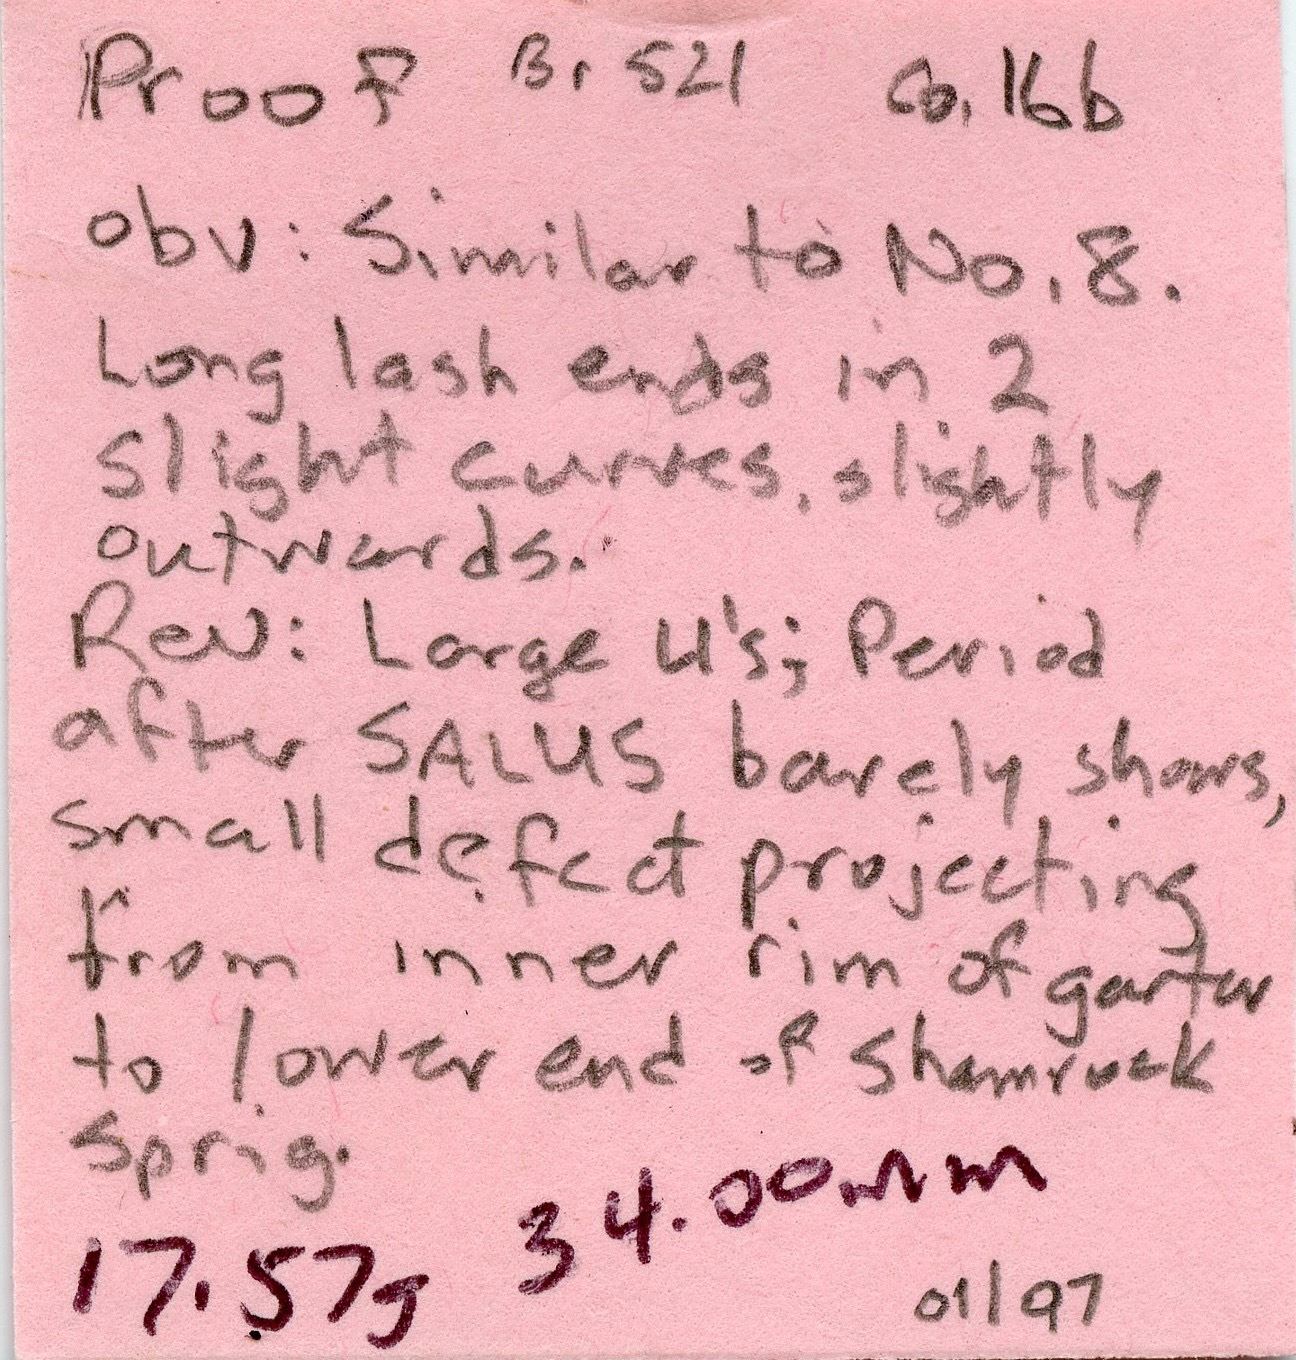 Proof Br 521 Co. 16b
Obv: Similar to No. 8.
Long lash ends in 2
slight curves, slightly
outwards.
Rev: Large U's; Period
after SALUS barely shows,
small defect projecting
from inner rim of garter
to lower end of shamrock
sprig.
34.00mm
17.57g
01/97